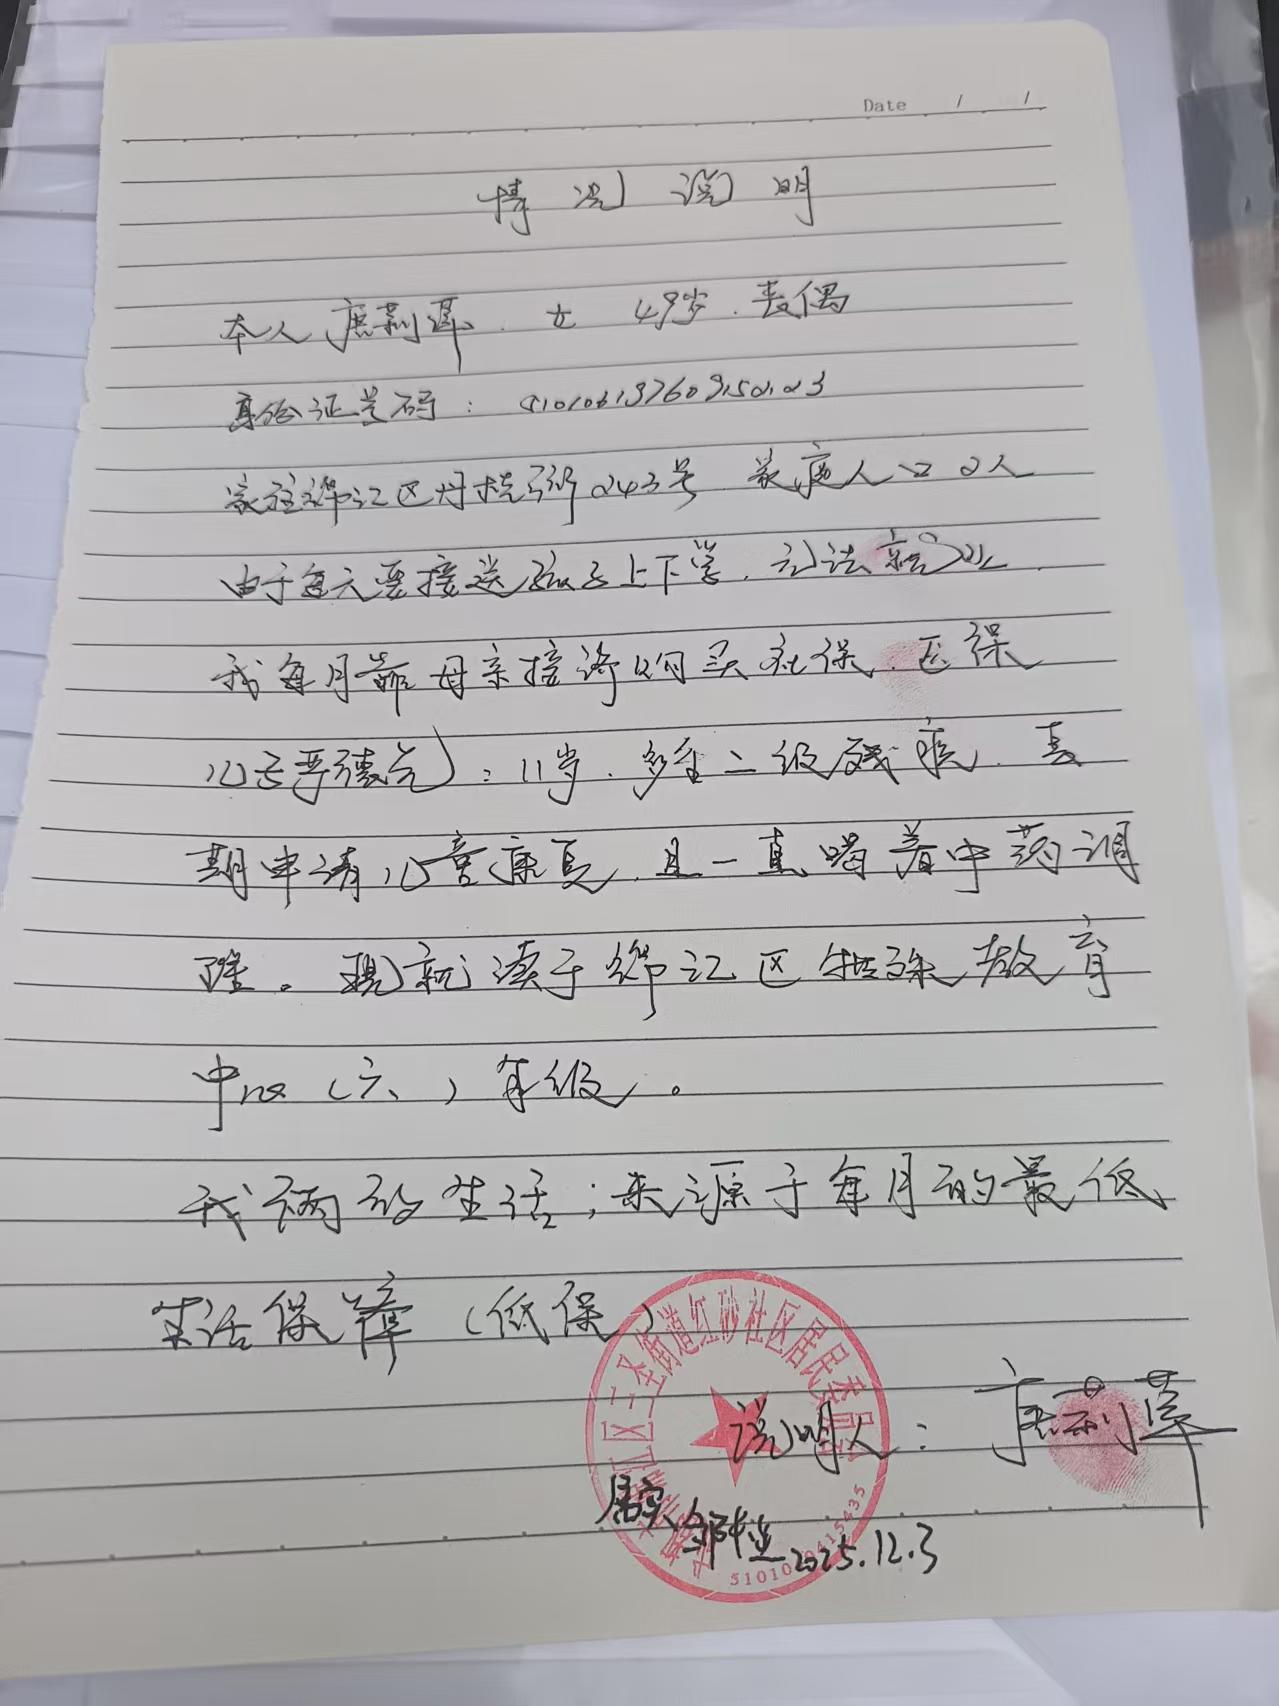 Date / /
情况说明
本人唐莉萍.女 49岁.丧偶
身份证号码:
家住锦江区丹桂街243号 家庭人口2人
由于每天要接送孩子上下学.无法就业
我每月靠母亲接济购买社保.医保
儿子严德元:11岁.多重二级残疾.长
期申请儿童康复.且一直喝着中药调
理。现就读于锦江区特殊教育
中心(六、)年级。
我俩的生活;来源于每月的最低
生活保障(低保)
江区三圣街道红砂社区居民委员
说明人:唐莉萍
属实 2025.12.3